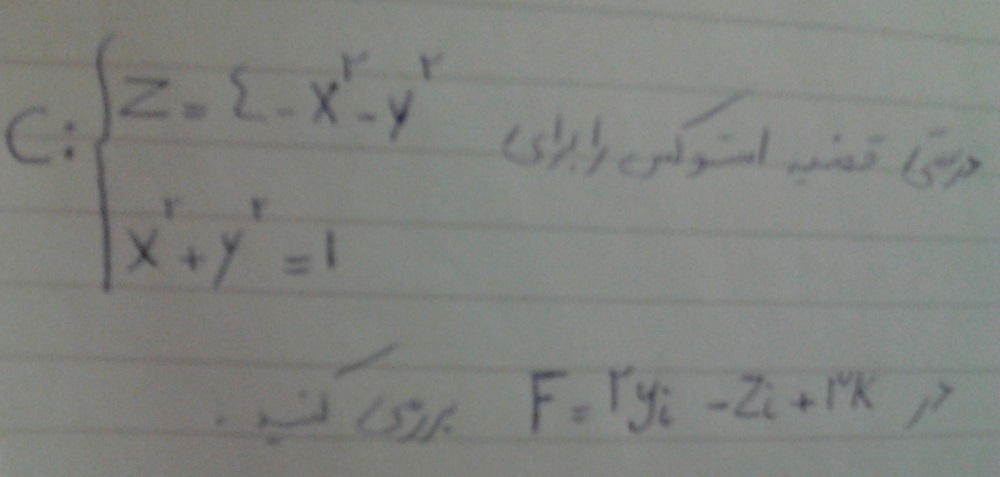 درستی قضیه استوکس را برای C: { Z = ٤ - X^٢ - y^٢
X^٢ + y^٢ = ١
در F = ٢yi - Zi + ٣K بررسی کنید.